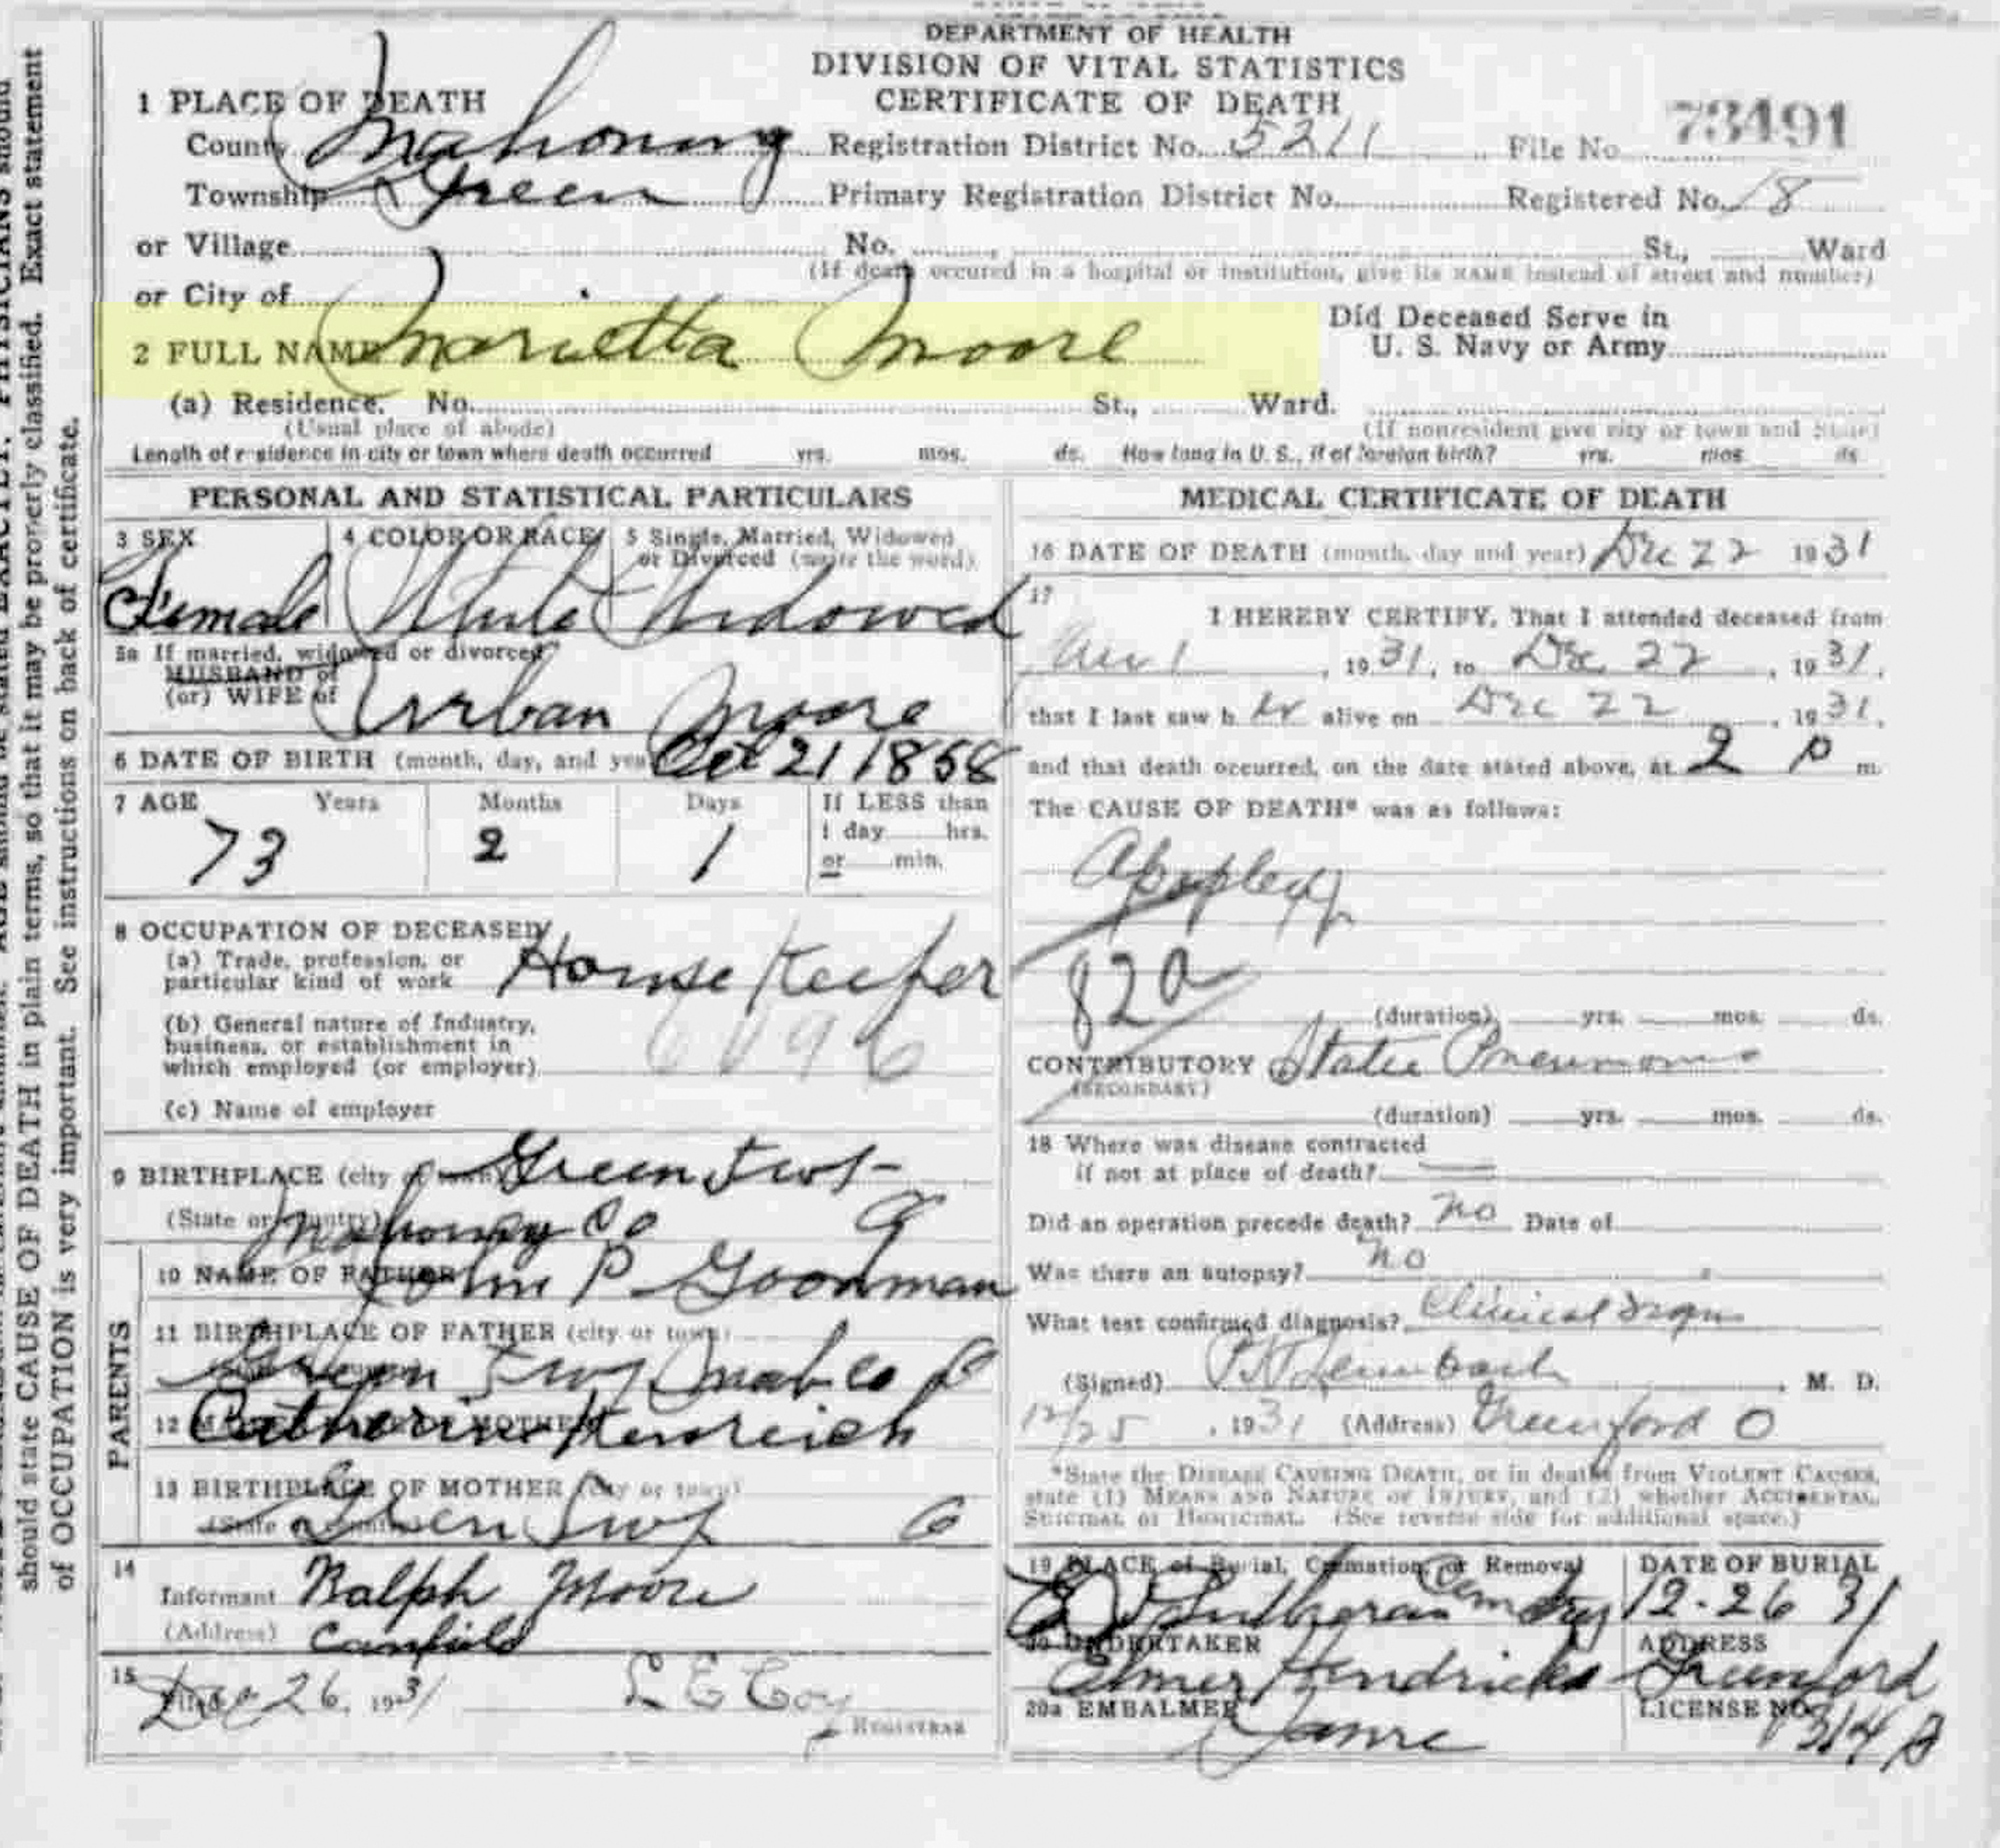 DEPARTMENT OF HEALTH
DIVISION OF VITAL STATISTICS
CERTIFICATE OF DEATH
1 PLACE OF DEATH
County Mahoning Registration District No. 5211 File No. 73491
Township Green Primary Registration District No. Registered No. 18
or Village No. St., Ward
(If death occured in a hospital or institution, give its NAME instead of street and number)
or City of
2 FULL NAME Marietta Moore
Did Deceased Serve in
U. S. Navy or Army
(a) Residence. No. St., Ward.
(Usual place of abode) (If nonresident give city or town and State)
Length of residence in city or town where death occurred yrs. mos. ds. How long in U. S., if of foreign birth? yrs. mos. ds
PERSONAL AND STATISTICAL PARTICULARS
3 SEX 4 COLOR OR RACE 5 Single, Married, Widowed
or Divorced (write the word)
Female White Widowed
5a If married, widowed or divorced
HUSBAND of
(or) WIFE of Urban Moore
6 DATE OF BIRTH (month, day, and year) Oct 21 1858
7 AGE Years Months Days If LESS than
1 day hrs.
or min.
73 2 1
8 OCCUPATION OF DECEASED
(a) Trade, profession, or
particular kind of work House Keeper
(b) General nature of Industry,
business, or establishment in
which employed (or employer)
(c) Name of employer
9 BIRTHPLACE (city or town) Green Twp-
(State or country) Mahoning Co O
PARENTS
10 NAME OF FATHER John P Goodman
11 BIRTHPLACE OF FATHER (city or town)
Green Twp Mah Co O
12 MAIDEN NAME OF MOTHER Catherine Henrich
13 BIRTHPLACE OF MOTHER (city or town)
(State or country) Green Twp O
14
Informant Ralph Moore
(Address) Canfield
15
Filed Dec 26, 1931 L E Coy
REGISTRAR
MEDICAL CERTIFICATE OF DEATH
16 DATE OF DEATH (month, day and year) Dec 22 1931
17
I HEREBY CERTIFY, That I attended deceased from
1, 1931, to Dec 22, 1931,
that I last saw her alive on Dec 22, 1931,
and that death occurred, on the date stated above, at 2 P m.
The CAUSE OF DEATH* was as follows:
Apoplexy
82a
(duration) yrs. mos. ds.
CONTRIBUTORY Static Pneumonia
(SECONDARY)
(duration) yrs. mos. ds.
18 Where was disease contracted
if not at place of death?
Did an operation precede death? no Date of
Was there an autopsy? no
What test confirmed diagnosis? Clinical Signs
(Signed) M. D.
12/25, 1931 (Address) Greenford O
*State the DISEASE CAUSING DEATH, or in deaths from VIOLENT CAUSES,
state (1) MEANS AND NATURE OF INJURY, and (2) whether ACCIDENTAL,
SUICIDAL or HOMICIDAL. (See reverse side for additional space.)
19 PLACE of Burial, Cremation, or Removal DATE OF BURIAL
Lutheran Cemetery 12-26 31
20 UNDERTAKER ADDRESS
Elmer Hendricks Greenford
20a EMBALMER LICENSE NO.
Same 1314 A
should state CAUSE OF DEATH in plain terms, so that it may be properly classified. Exact statement
of OCCUPATION is very important. See instructions on back of certificate.